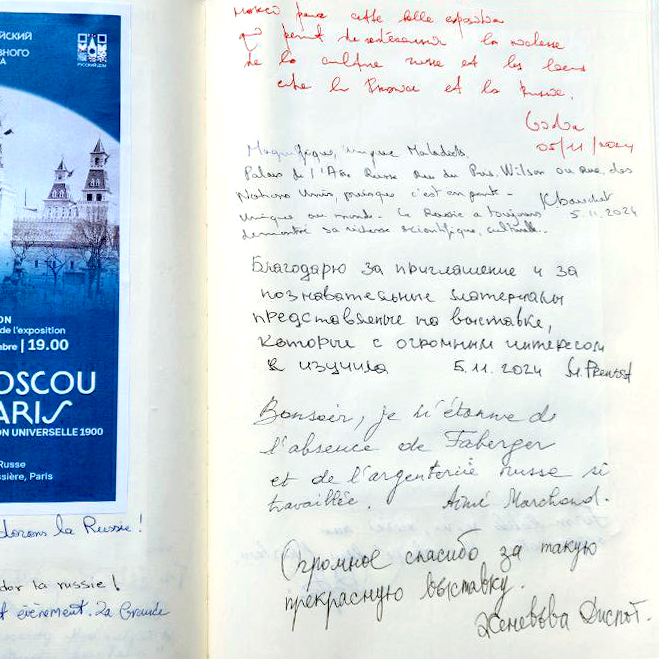 ЙСКИЙ
ВНОГО
РУССКИЙ ДОМ
ON
de l'exposition
mbre | 19.00
OSCOU
ARIS
ON UNIVERSELLE 1900
Russe
ssière, Paris
la Russie !
la russie !
évènement. La Grande
pour cette belle
qui permet de la richesse
de la culture russe et les liens
entre la France et la Russie.
05/11/2024
Magnifique, unique
Palais de l'Air Russe rue du Pres. Wilson ou rue des
Nations Unis, puisque c'est un
unique au monde. La Russie a toujours 5.11.2024
démontré sa richesse scientifique, culturelle..
Благодарю за приглашение и за
познавательные материалы
представленые на выставке,
которые с огромным интересом
я изучила 5.11.2024
Bonsoir, je m'étonne de
l'absence de Faberger
et de l'argenterie russe si
travaillée. Aimé Marchand.
Огромное спасибо за такую
прекрасную выставку.
Женевьва Диспот.